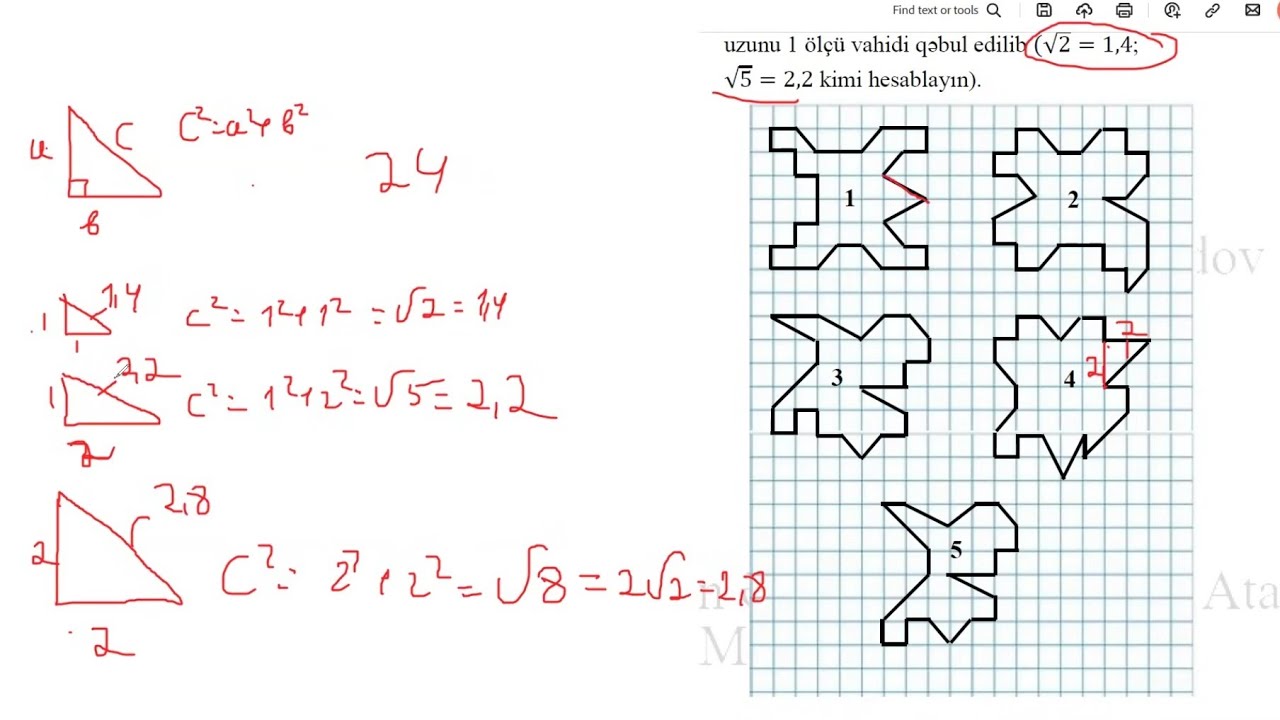 Find text or tools
uzunu 1 ölçü vahidi qəbul edilib (√2 = 1,4;
√5 = 2,2 kimi hesablayın).
a
C
b
C² = a² + b²
24
1
1,4
1
c² = 1² + 1² = √2 = 1,4
1
2,2
2
c² = 1² + 2² = √5 = 2,2
2
2,8
2
C² = 2² + 2² = √8 = 2√2 = 2,8
1
2
3
4
2
2
5
dov
Ata
M